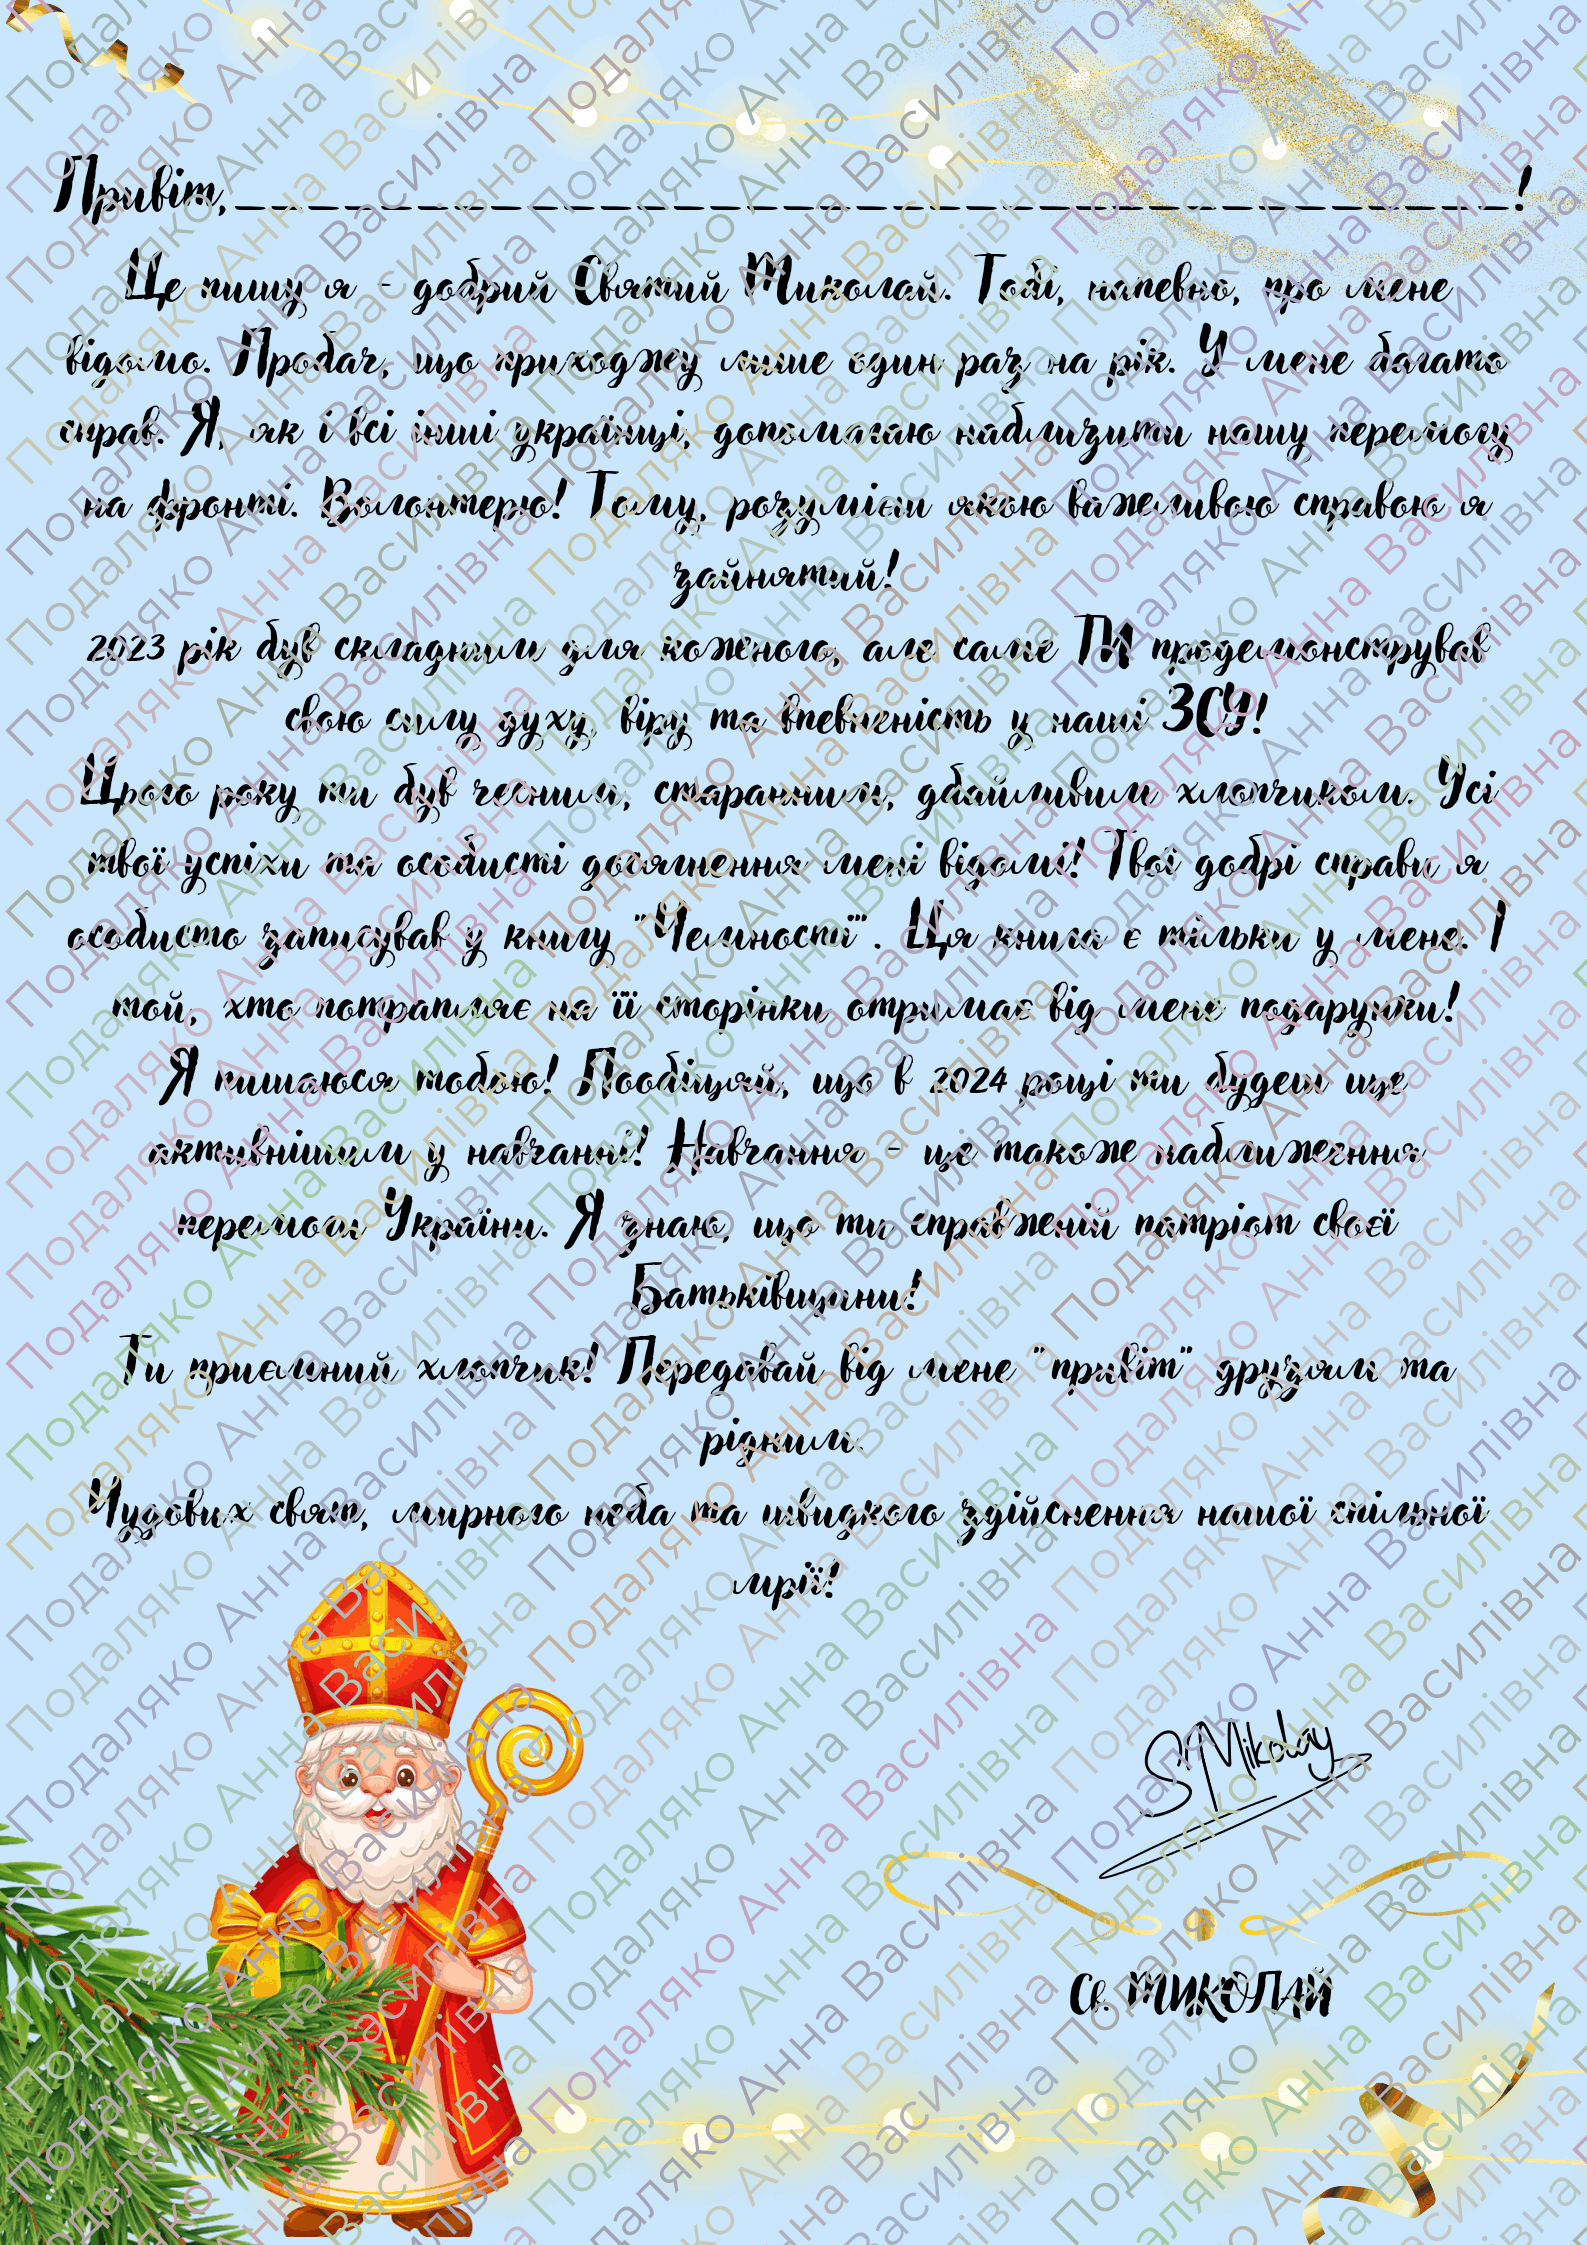 Привіт,___________________________________!
Це пишу я - добрий Святий Миколай. Тобі, напевно, про мене
відомо. Пробач, що приходжу лише один раз на рік. У мене багато
справ. Я, як і всі інші українці, допомагаю наблизити нашу перемогу
на фронті. Волонтерю! Тому, розумієш якою важливою справою я
зайнятий!
2023 рік був складним для кожного, але саме ТИ продемонстрував
свою силу духу, віру та впевненість у наші ЗСУ!
Цього року ти був чесним, старанним, дбайливим хлопчиком. Усі
твої успіхи та особисті досягнення мені відомі! Твої добрі справи я
особисто записував у книгу "Чемності". Ця книга є тільки у мене. І
той, хто потрапляє на її сторінки отримає від мене подарунки!
Я пишаюся тобою! Пообіцяй, що в 2024 році ти будеш ще
активнішим у навчанні! Навчання - це також наближення
перемоги України. Я знаю, що ти справжній патріот своєї
Батьківщини!
Ти приємний хлопчик! Передавай від мене "привіт" друзям та
рідним.
Чудових свят, мирного неба та швидкого здійснення нашої спільної
мрії!
S Mikolay
Св. МИКОЛАЙ
Подаляко Анна Василівна